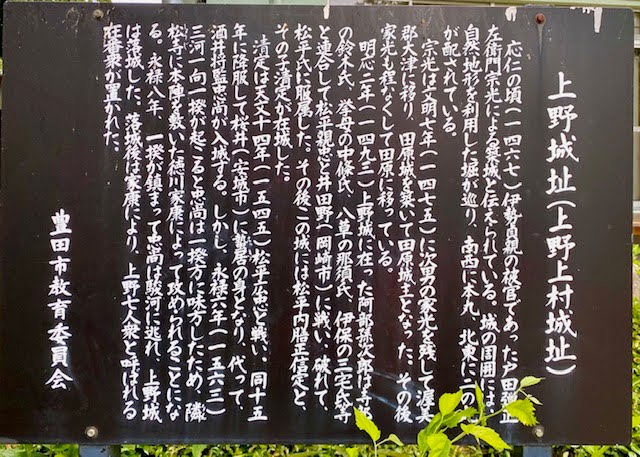 上野城址(上野上村城址)
応仁の頃(一四六七)伊勢貞親の被官であった戸田弾正
左衛門宗光による築城と伝えられている。城の周囲には
自然地形を利用した堀が巡り、南西に本丸、北東に二の丸
が配されている。
宗光は文明七年(一四七五)に次男の家光を残して渥美
郡大津に移り、田原城を築いて田原城主となった。その後
家光も程なくして田原に移っている。
明応二年(一四九三)上野城に在った阿部孫次郎は寺部
の鈴木氏、挙母の中條氏、八草の那須氏、伊保の三宅氏等
と連合して松平親忠と井田野(岡崎市)に戦い、破れて、
松平氏に服属した。その後この城には松平内膳正信定と、
その子清定が在城した。
清定は天文十四年(一五四五)松平広忠と戦い、同十五
年に降服して桜井(安城市)に蟄居の身となり、代って、
酒井将監忠尚が入城する。しかし、永禄六年(一五六三)
三河一向一揆が起こると忠尚は一揆方に味方したため、隣
松寺に本陣を敷いた徳川家康によって攻められることにな
る。永禄八年、一揆が鎮まって忠尚は駿河に逃れ、上野城
は落城した。落城後は家康により、上野七人衆と呼ばれる
在番衆が置かれた。
豊田市教育委員会